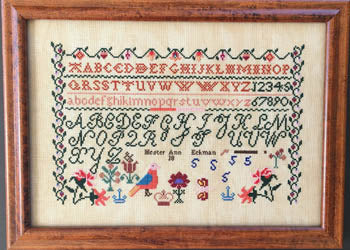 ABCDEFGHIJKLMNOP
QRSTTUVWVWXYZ12345
abcdefghijklmnopqrstuvwxyz 67890
ABCDEFGHIJKLM
NOPQRSTUVW
XYZ Hester Ann Eckman 5 5 5 5
28 5